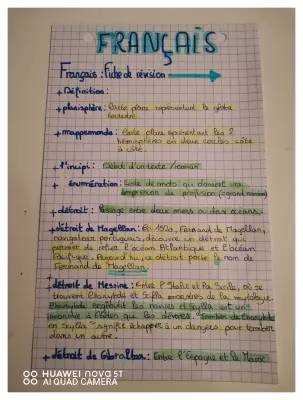 FRANÇAIS
Français : Fiche de révision
+ Définition :
+ planisphère : Carte plane représentant le globe
terrestre
+ mappemonde : Carte plane représentant les 2
hémisphères en deux cercles côte
à côte
+ l'incipi : Début d'un texte / roman
+ énumération : Liste de mots qui donnent une
impression de profusion (grand nombre)
+ détroit : Passage entre deux mers ou des océans.
+ détroit de Magellan : En 1520, Fernand de Magellan,
navigateur portugais, découvre un détroit qui
permet de relier l'océan Atlantique et l'océan
Pacifique. Aujourd'hui, ce détroit porte le nom de
Fernand de Magellan
+ détroit de Messine : Entre l'Italie et la Sicile, où se
trouvent Charybde et Scylla monstres de la mythologie.
Charybde engloutit les navires et Scylla est un
monstre à 6 têtes qui les dévore. "Tomber de Charybde
en Scylla" signifie échapper à un danger pour tomber
dans un autre.
+ détroit de Gibraltar : Entre l'Espagne et le Maroc
HUAWEI nova 5T
AI QUAD CAMERA